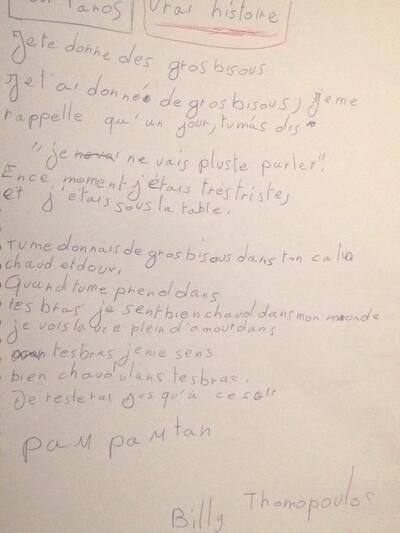 Vrai histoire
Je te donne des gros bisous
Je t'ai donnée de gros bisous, je me
rappelle qu'un jour, tu m'as dis
"je ne vais pluste parler".
En ce moment j'étais très triste,
et j'étais sous la table.
Tu me donnais de gros bisous dans ton calin
chaud et doux,
Quand tu me prend dans
tes bras, je sent bien chaud dans mon monde
je vois la vie plein d'amour dans
tes bras, je me sens
bien chaud dans tes bras.
Je resterai jusqu'à ce soir
pam pam tan
Billy Thomopoulos